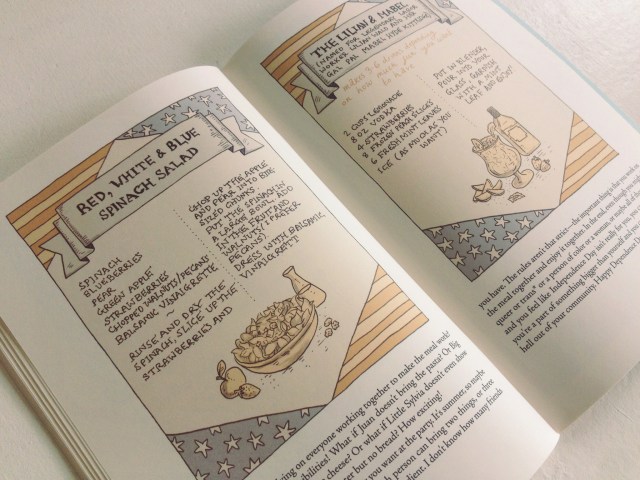 RED, WHITE & BLUE
SPINACH SALAD
SPINACH
BLUEBERRIES
PEAR
GREEN APPLE
STRAWBERRIES
CHOPPED WALNUTS/PECANS
BALSAMIC VINAIGRETTE
~
RINSE AND DRY THE
SPINACH, SLICE UP THE
STRAWBERRIES AND
CHOP UP THE APPLE
AND PEAR INTO BITE
SIZED CHUNKS.
PUT THE SPINACH IN
A LARGE BOWL, ADD
IN THE FRUIT AND
WALNUTS (
PECANS).
DRESS WITH BALSAMIC
VINAIGRETTE
ing on everyone working together to make the meal work!
ibilities! What if Juan doesn't bring the pasta? Or Big
cheese? Or what if Little Sylvia doesn't even show
ter but no bread? How exciting!
you want at the party. It's summer, so maybe
ch person can bring two things, or three
dient. I don't know how many friends
THE LILIAN & MABEL
(NAMED FOR LEGENDARY
WORKER LILIAN AND HER
GAL PAL MABEL
makes 3-6 drinks depending
on how much you
to have
2 CUPS LEMONADE
8 OZ. VODKA
4 STRAWBERRIES
8 FROZEN PEACH SLICES
6 FRESH MINT LEAVES
ICE (AS MUCH AS YOU
WANT)
PUT IN BLENDER
POUR INTO
GLASS. GARNISH
WITH A MINT
LEAF AND
you have. The rules aren't that strict—the important thing is that you
the meal together and enjoy it together. In the end, even though
queer or trans* or a person of color or a woman, or maybe all of
and you feel like Independence Day isn't really for you,
you're a part of something bigger than yourself and you
hell out of your community. Happy Dependence